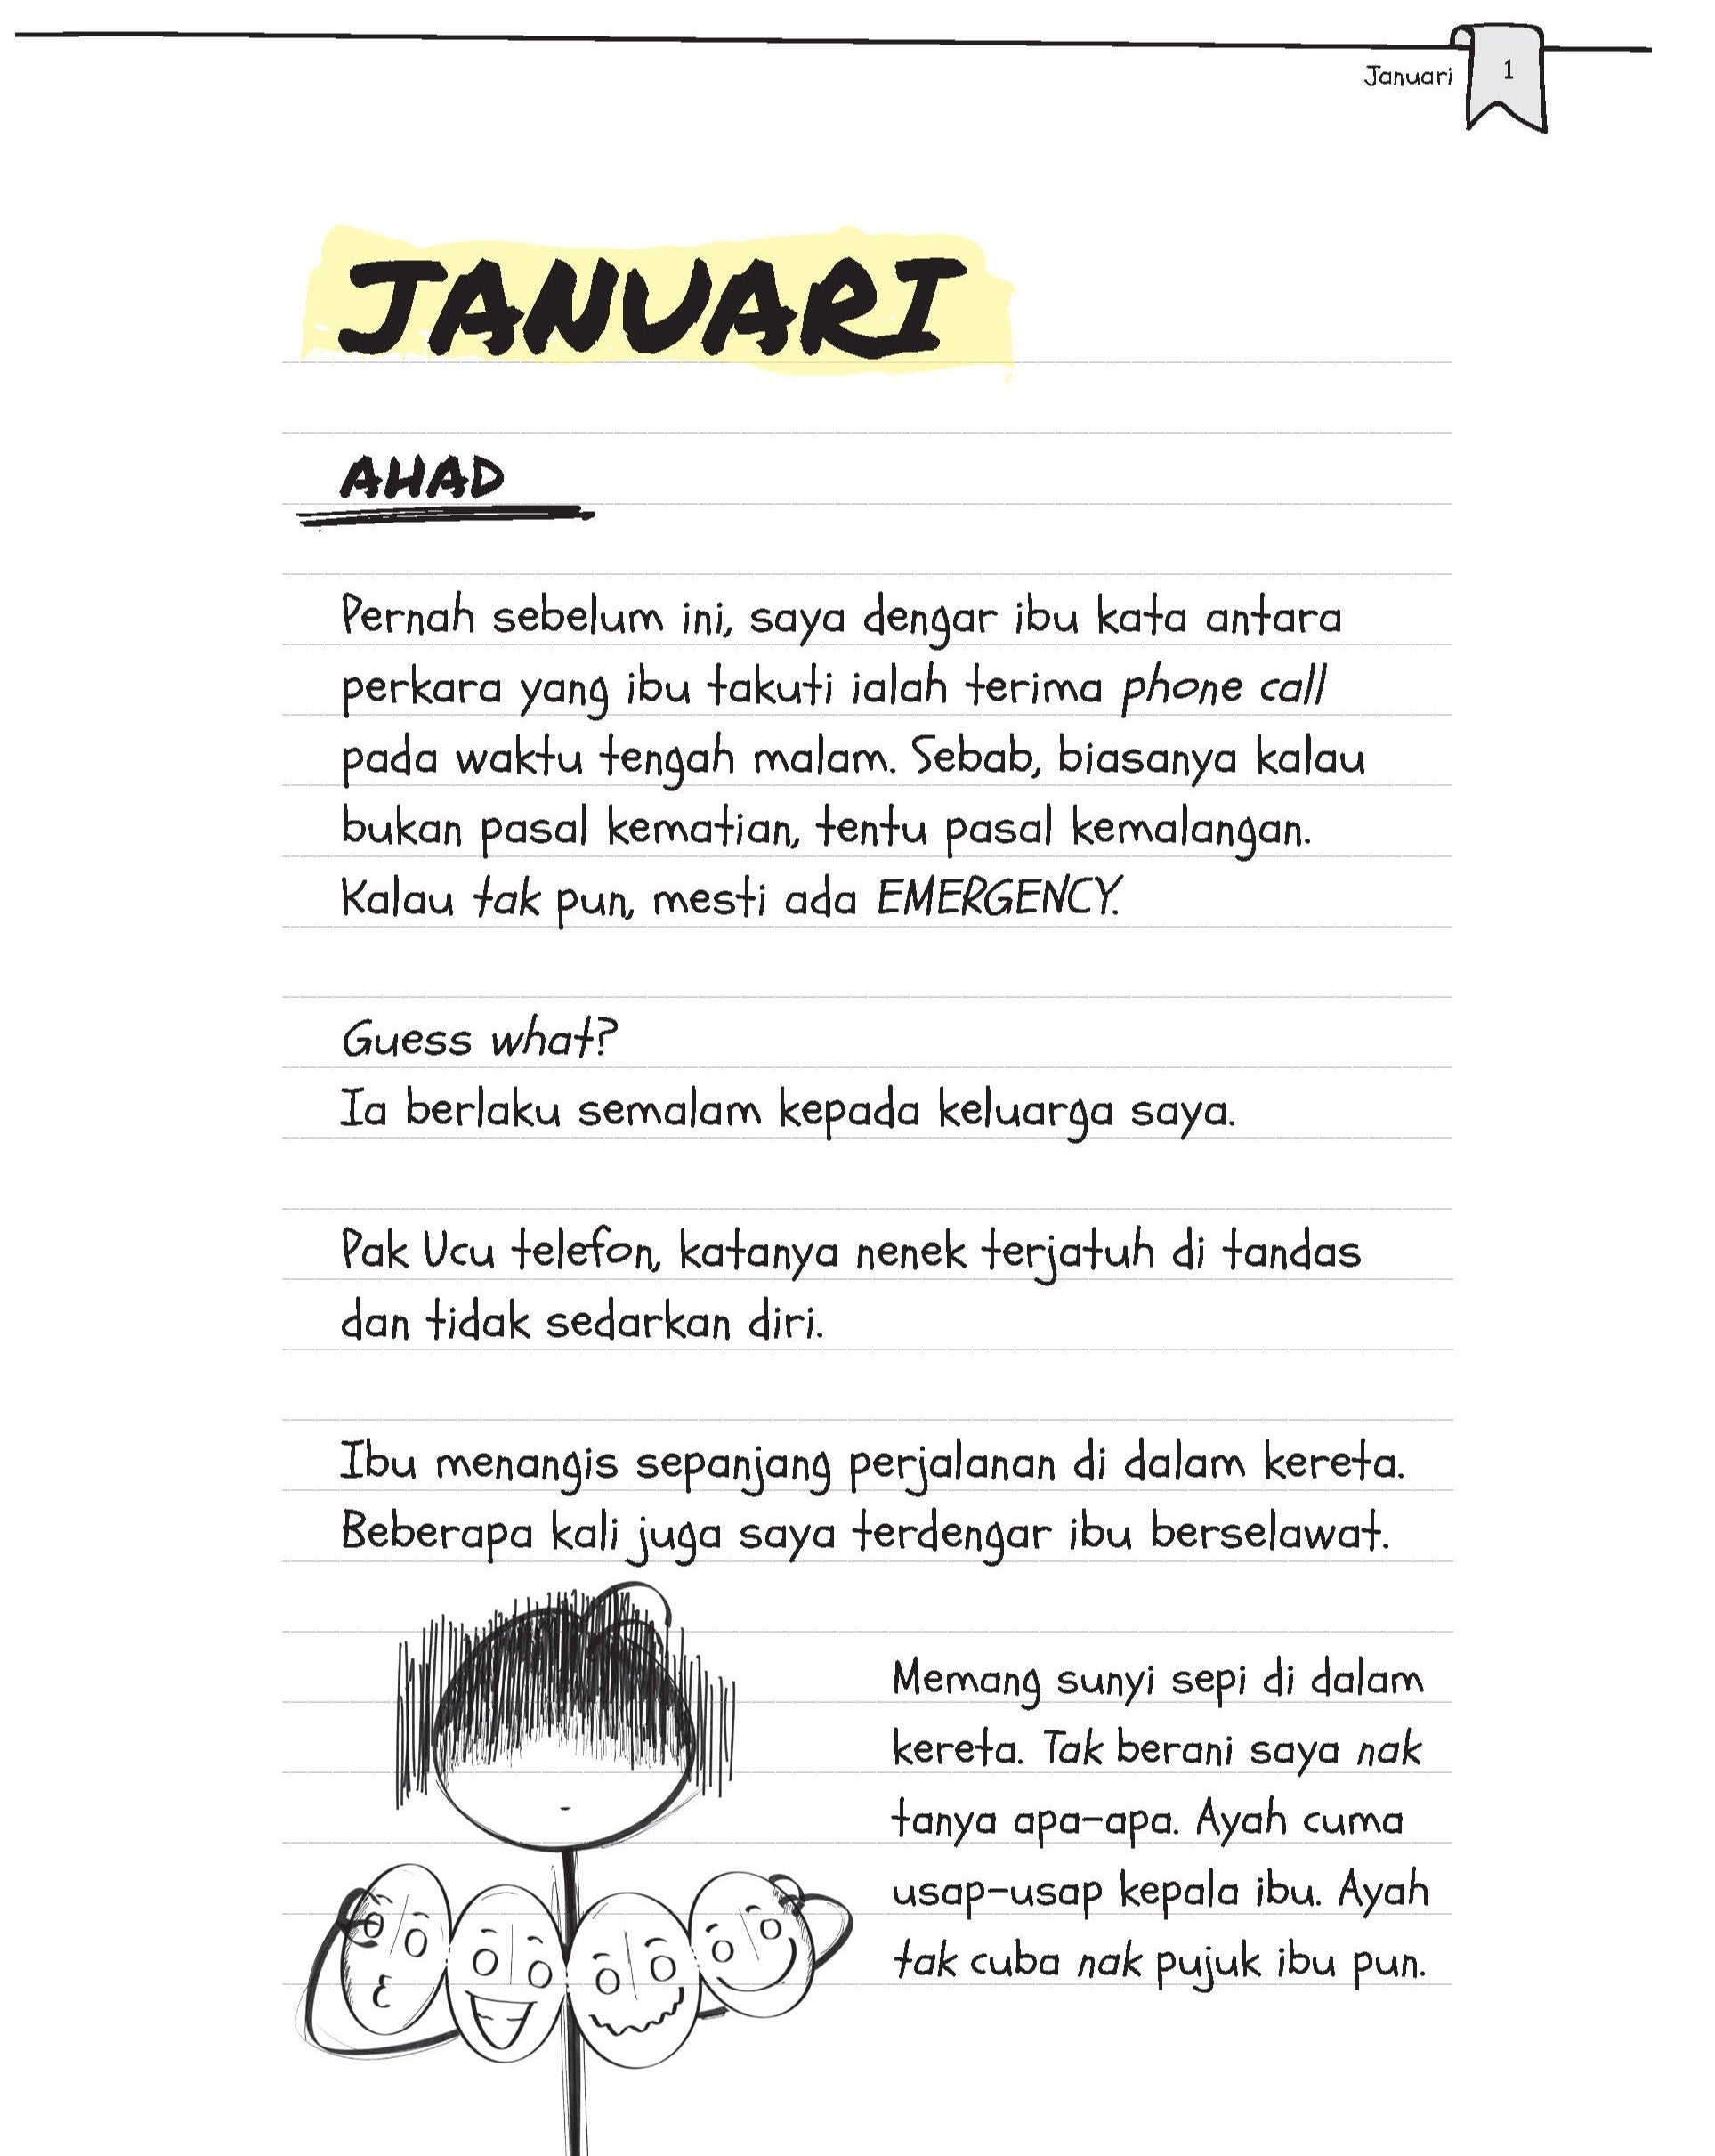 Januari 1
JANUARI
AHAD
Pernah sebelum ini, saya dengar ibu kata antara
perkara yang ibu takuti ialah terima phone call
pada waktu tengah malam. Sebab, biasanya kalau
bukan pasal kematian, tentu pasal kemalangan.
Kalau tak pun, mesti ada EMERGENCY.
Guess what?
Ia berlaku semalam kepada keluarga saya.
Pak Ucu telefon, katanya nenek terjatuh di tandas
dan tidak sedarkan diri.
Ibu menangis sepanjang perjalanan di dalam kereta.
Beberapa kali juga saya terdengar ibu berselawat.
Memang sunyi sepi di dalam
kereta. Tak berani saya nak
tanya apa-apa. Ayah cuma
usap-usap kepala ibu. Ayah
tak cuba nak pujuk ibu pun.